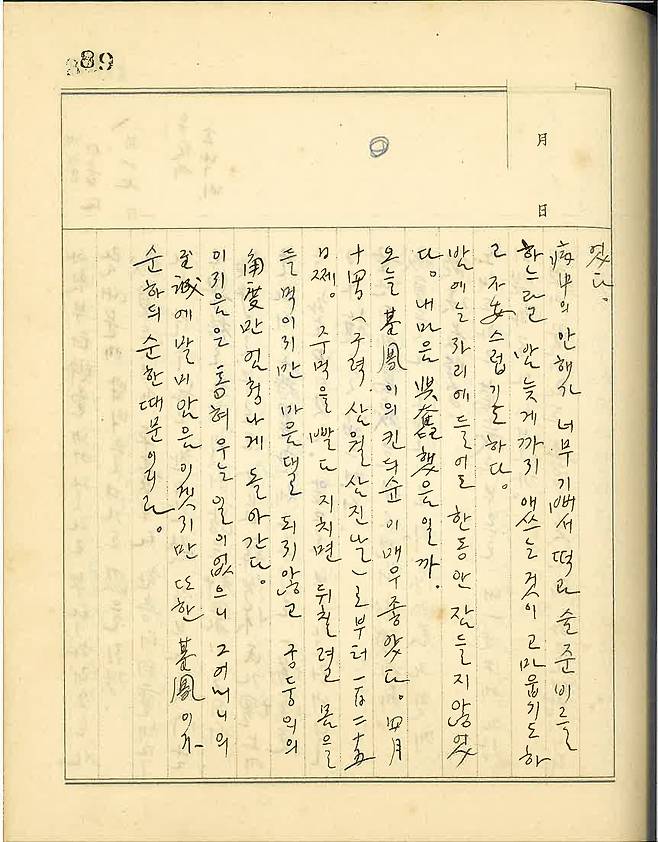 89
月
日
었다。
病中의 안해가 너무 기뻐서 떡과 술 준비를
하느라고 밤 늦게까지 애쓰는 것이 고마웁기도 하
고 자스럽기도 하다。
밤에는 자리에 들어도 한동안 잠들지 않었
다。 내 마음 興奮했음일까.
오늘 基鳳이의 킨 순이 매우 좋았다。 四月
十四 (구력 삼월 삼진날)로부터 一百二十五
日째。 주먹을 빨다 지치면 뒤칠려 몸을
들먹이지만 마음대로 되지 않고 궁둥의의
角度만 엄청나게 돌아간다。
이 지음은 통 혀 우는 일이 없으니 그 어머니의
至誠에 말미암음이겠지만 또한 基鳳이가
순하 순한 때문이리라。